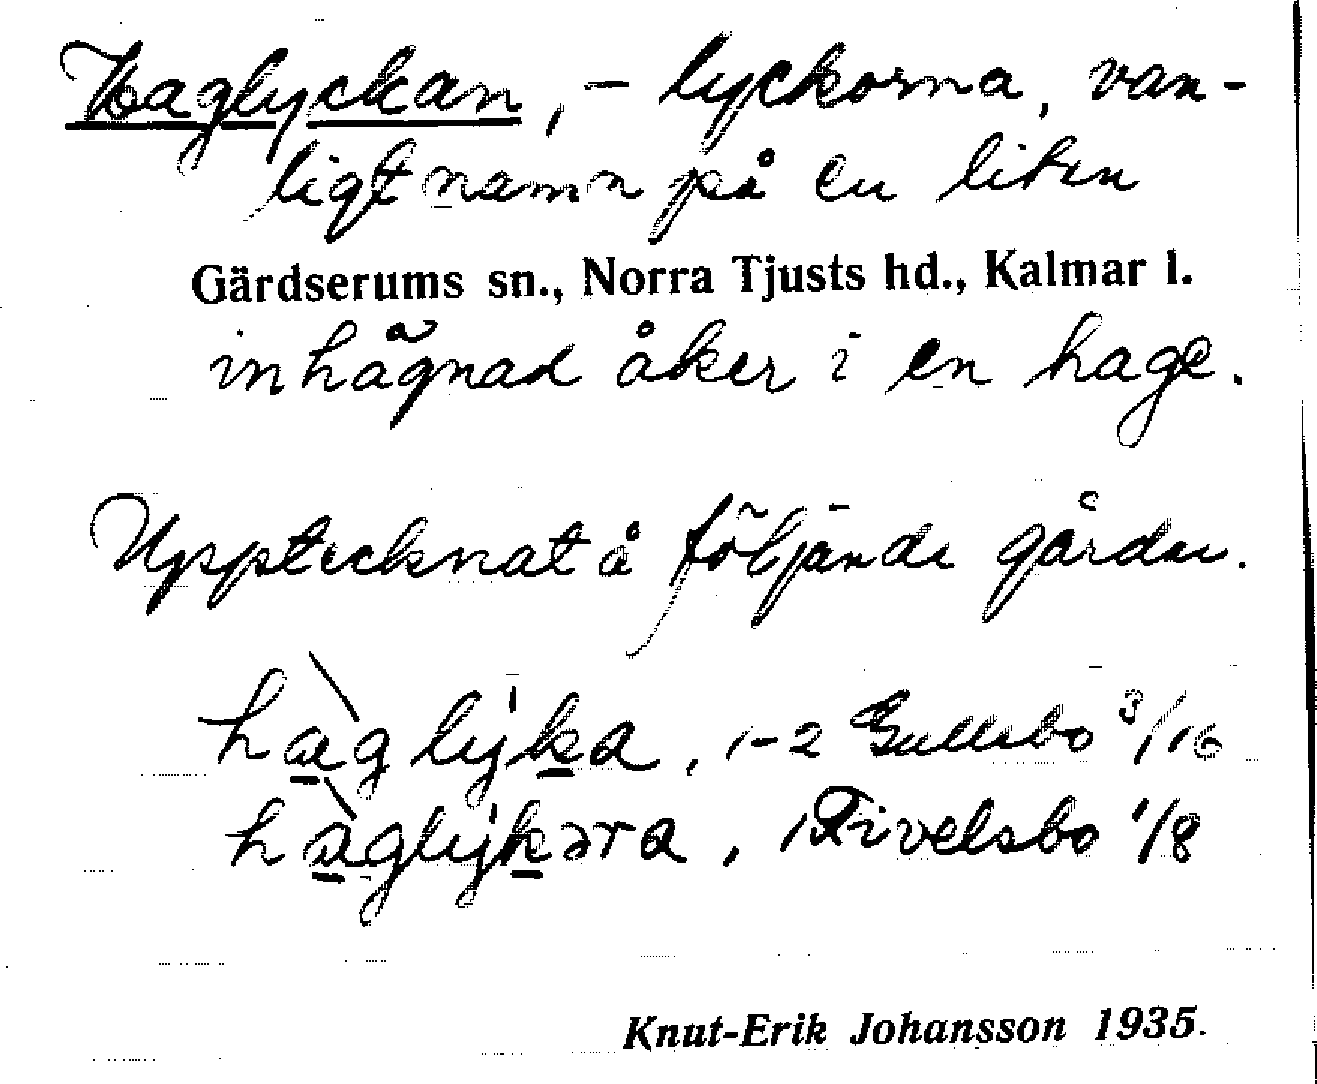 Haglyckan, - lyckorna, van-
ligt namn på en liten
Gärdserums sn., Norra Tjusts hd., Kalmar l.
inhägnad åker i en hage.
Upptecknat å följande gårdar.
hàglyka, 1-2 Gullebo 3/16
hàglykəra, 1 Fivelsbo 1/8
Knut-Erik Johansson 1935.